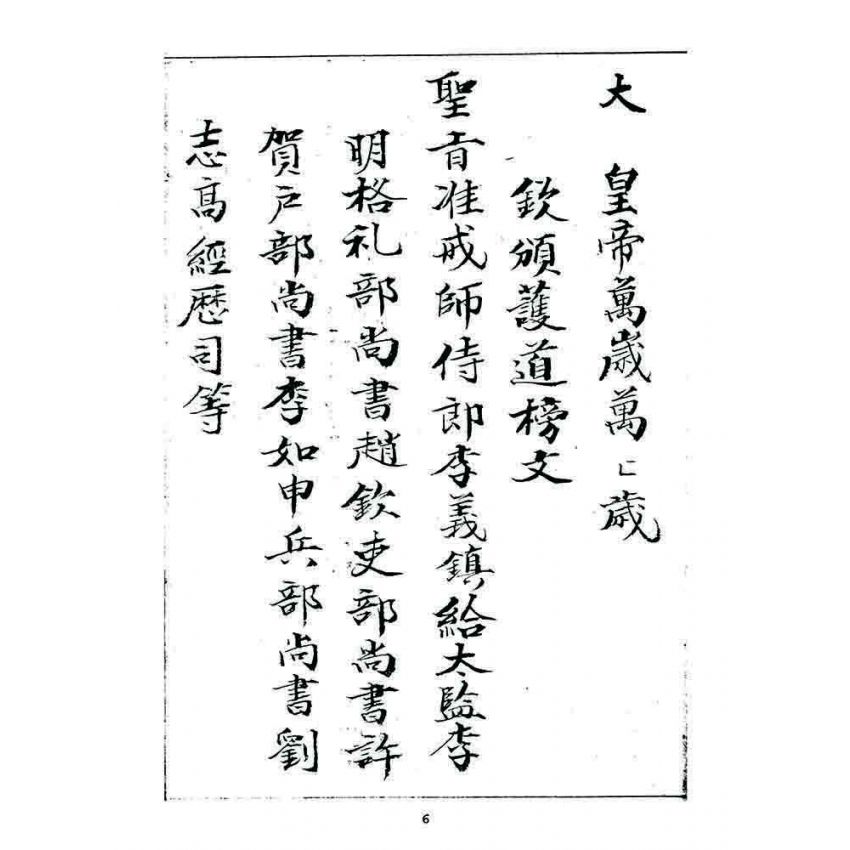 大 皇帝萬歲萬〻歲
欽頒護道榜文
聖旨准戒師侍郎李義鎮給太監李
明格礼部尚書趙欽吏部尚書許
賀戶部尚書李如申兵部尚書劉
志高經歷司等
6